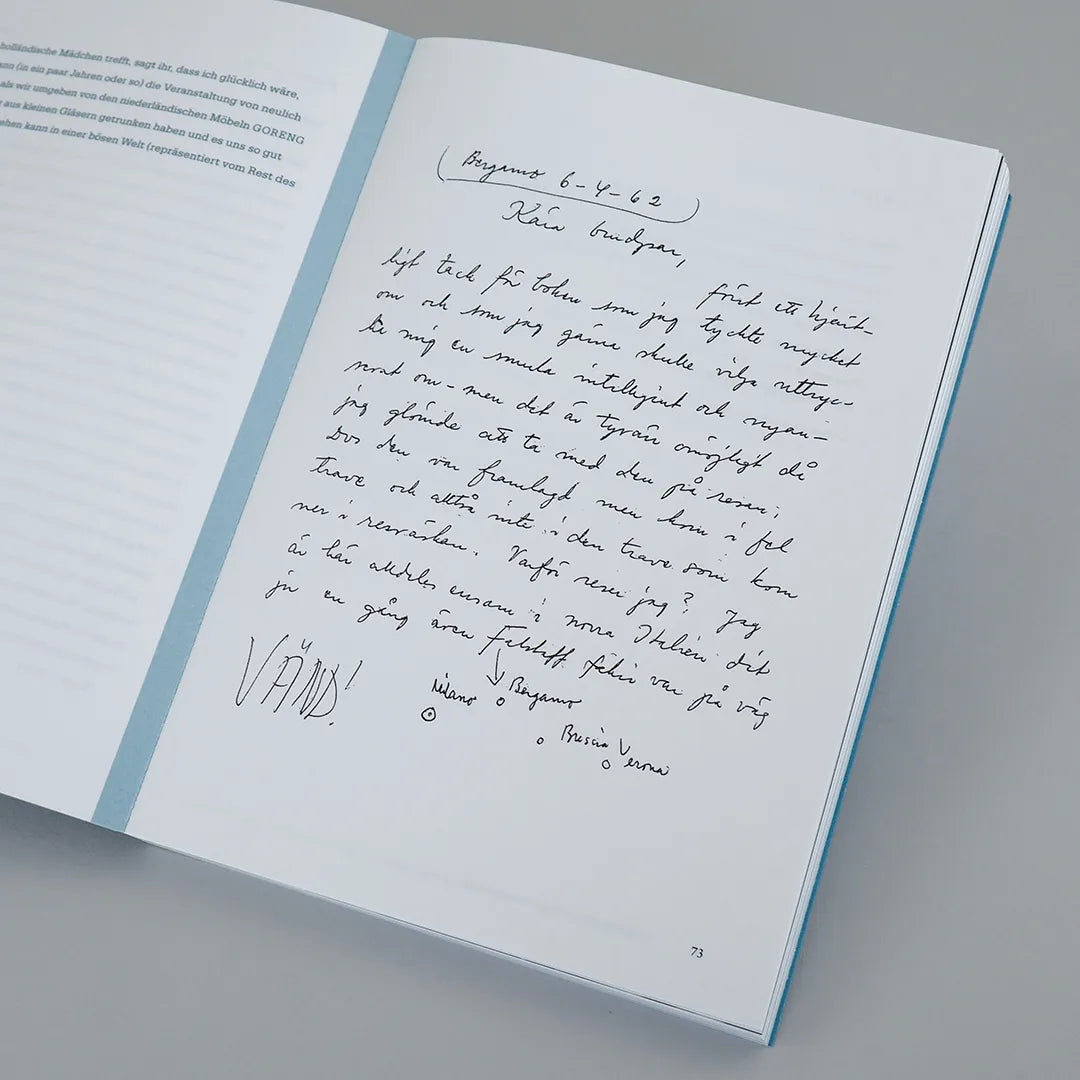 holländische Mädchen trifft, sagt ihr, dass ich glücklich wäre,
nn (in ein paar Jahren oder so) die Veranstaltung von neulich
als wir umgeben von den niederländischen Möbeln GORENG
aus kleinen Gläsern getrunken haben und es uns so gut
ehen kann in einer bösen Welt (repräsentiert vom Rest des
Bergamo 6-4-62
Kära brudpar,
först ett hjärt-
ligt tack för boken som jag tyckte mycket
om och som jag gärna skulle vilja uttryc-
ka mig en smula intelligent och nyan-
serat om - men det är tyvärr omöjligt då
jag glömde att ta med den på resan;
Dvs den var framlagd men kom i fel
trave och alltså inte i den trave som kom
ner i resväskan. Varför reser jag? Jag
är här alldeles ensam i norra Italien dit
ju en gång även Falstaff fakir var på väg
VÄND!
Milano
Bergamo
Brescia
Verona
73